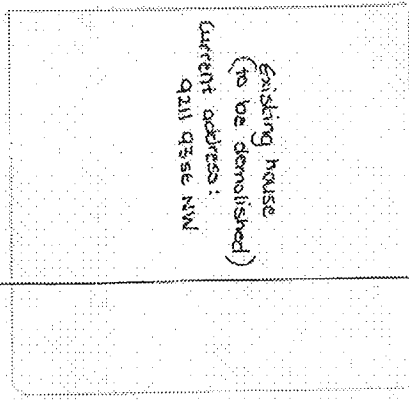 Existing house
(to be demolished)
Current address:
9211 93st NW